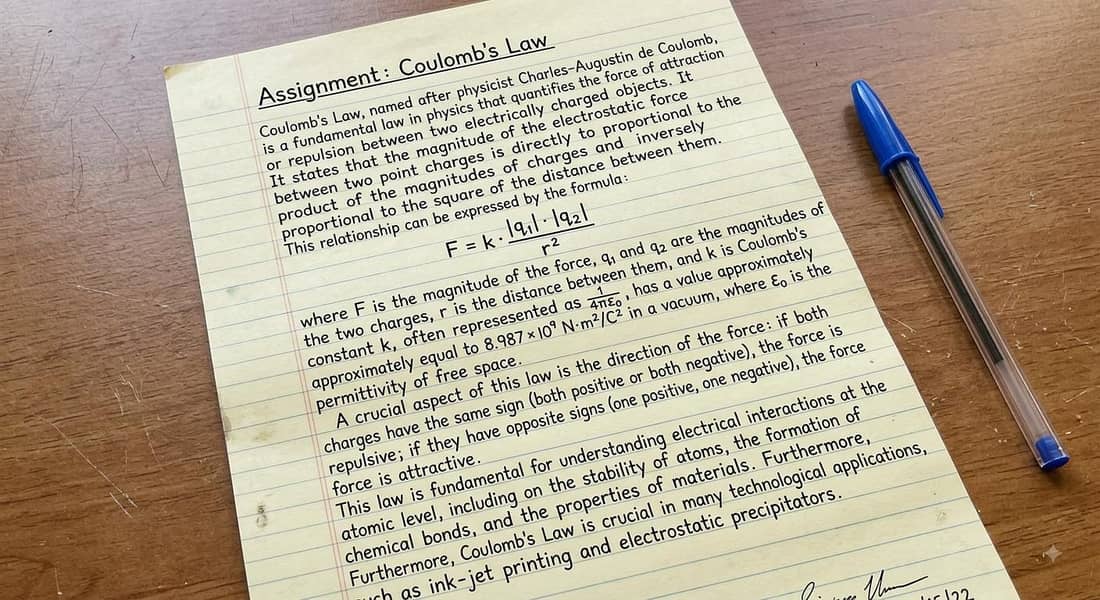 Assignment: Coulomb's Law
Coulomb's Law, named after physicist Charles-Augustin de Coulomb,
is a fundamental law in physics that quantifies the force of attraction
or repulsion between two electrically charged objects. It
It states that the magnitude of the electrostatic force
between two point charges is directly to proportional to the
product of the magnitudes of charges and inversely
proportional to the square of the distance between them.
This relationship can be expressed by the formula:
F = k · |q₁| · |q₂| / r²
where F is the magnitude of the force, q₁ and q₂ are the magnitudes of
the two charges, r is the distance between them, and k is Coulomb's
constant k, often represesented as 1/4πε₀, has a value approximately
approximately equal to 8.987 × 10⁹ N·m²/C² in a vacuum, where ε₀ is the
permittivity of free space.
A crucial aspect of this law is the direction of the force: if both
charges have the same sign (both positive or both negative), the force is
repulsive; if they have opposite signs (one positive, one negative), the force
force is attractive.
This law is fundamental for understanding electrical interactions at the
atomic level, including on the stability of atoms, the formation of
chemical bonds, and the properties of materials. Furthermore,
Furthermore, Coulomb's Law is crucial in many technological applications,
as ink-jet printing and electrostatic precipitators.